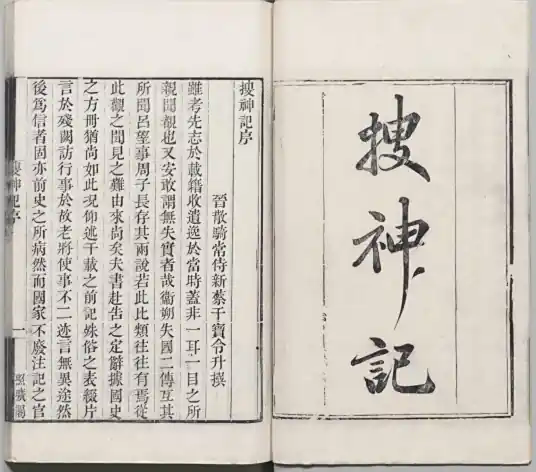 搜神記
搜神記序
晉散騎常侍新蔡干寶令升撰
雖考先志於載籍收遺逸於當時蓋非一耳一目之所
親聞覩也又安敢謂無失實者哉衞朔失國二傳互其
所聞呂望事周子長存其兩說若此比類往往有焉從
此觀之聞見之難由來尚矣夫書赴告之定辭據國史
之方冊猶尚如此況仰述千載之前記殊俗之表綴片
言於殘闕訪行事於故老將使事不二迹言無異途然
後爲信者固亦前史之所病然而國家不廢注記之官
搜神記序
一